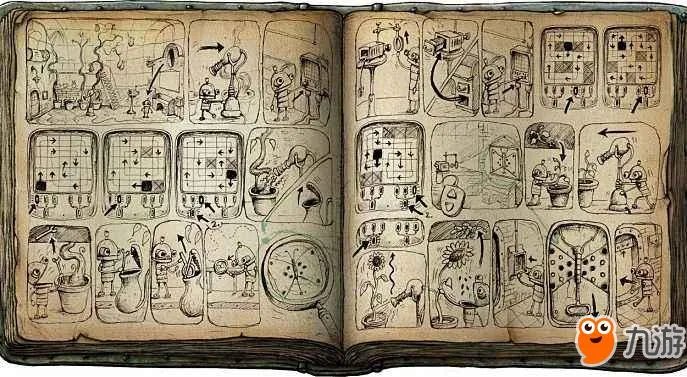 2.
2.
九游